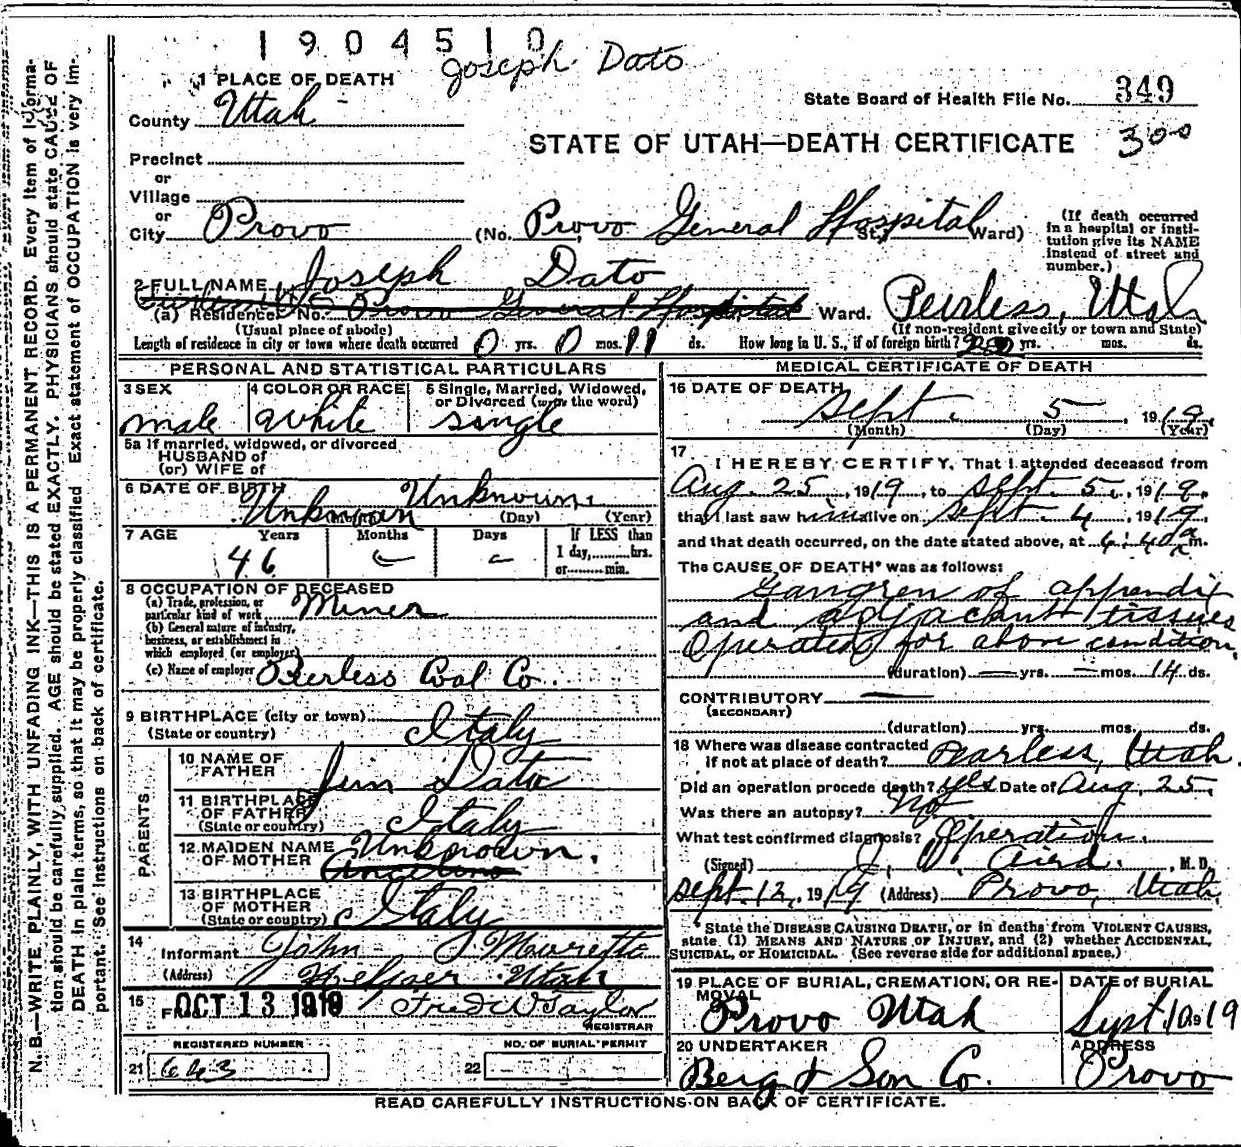 1904510
Joseph Dato
1 PLACE OF DEATH
County Utah
State Board of Health File No. 349
STATE OF UTAH—DEATH CERTIFICATE 300
Precinct
or
Village
or
City Provo (No. Provo General Hospital St., Ward)
(If death occurred in a hospital or institution give its NAME instead of street and number.)
2 FULL NAME Joseph Dato
(a) Residence. No. Provo General Hospital Ward. Peerless, Utah
(Usual place of abode) (If non-resident give city or town and State)
Length of residence in city or town where death occurred 0 yrs. 0 mos. 11 ds. How long in U. S., if of foreign birth? yrs. mos. ds.
PERSONAL AND STATISTICAL PARTICULARS
3 SEX male
4 COLOR OR RACE white
5 Single, Married, Widowed, or Divorced (write the word) single
5a If married, widowed, or divorced
HUSBAND of
(or) WIFE of
6 DATE OF BIRTH Unknown Unknown.
(Month) (Day) (Year)
7 AGE Years 46 Months - Days - If LESS than 1 day, hrs. or min.
8 OCCUPATION OF DECEASED
(a) Trade, profession, or particular kind of work Miner
(b) General nature of industry, business, or establishment in which employed (or employer)
(c) Name of employer Peerless Coal Co.
9 BIRTHPLACE (city or town)
(State or country) Italy
PARENTS
10 NAME OF FATHER Jim Dato
11 BIRTHPLACE OF FATHER (State or country) Italy
12 MAIDEN NAME OF MOTHER Unknown.
13 BIRTHPLACE OF MOTHER (State or country) Italy
14 Informant John
(Address) Helper Utah
15 F OCT 13 1919 Fred W Taylor
REGISTRAR
REGISTERED NUMBER NO. OF BURIAL PERMIT
21 643 22
MEDICAL CERTIFICATE OF DEATH
16 DATE OF DEATH
Sept. 5, 1919.
(Month) (Day) (Year)
17 I HEREBY CERTIFY, That I attended deceased from
Aug. 25, 1919, to Sept. 5., 1919.
that I last saw him alive on Sept. 4, 1919,
and that death occurred, on the date stated above, at 4:40 a m.
The CAUSE OF DEATH* was as follows:
Gangren of appendix
and adjacant tissues
Operated for above condition.
(duration) — yrs. — mos. 14 ds.
CONTRIBUTORY —
(SECONDARY)
(duration) yrs. mos. ds.
18 Where was disease contracted
if not at place of death? Pearless, Utah.
Did an operation precede death? Yes Date of Aug. 25.
Was there an autopsy? No
What test confirmed diagnosis? Operation.
(Signed) J. W. Aird. M. D.
Sept. 12, 1919 (Address) Provo, Utah.
* State the DISEASE CAUSING DEATH, or in deaths from VIOLENT CAUSES,
state (1) MEANS AND NATURE OF INJURY, and (2) whether ACCIDENTAL,
SUICIDAL, or HOMICIDAL. (See reverse side for additional space.)
19 PLACE OF BURIAL, CREMATION, OR REMOVAL
Provo Utah
DATE of BURIAL
Sept 10 1919
20 UNDERTAKER
Berg & Son Co.
ADDRESS
Provo
READ CAREFULLY INSTRUCTIONS ON BACK OF CERTIFICATE.
N. B.—WRITE PLAINLY, WITH UNFADING INK—THIS IS A PERMANENT RECORD. Every item of informa-
tion should be carefully supplied. AGE should be stated EXACTLY. PHYSICIANS should state CAUSE OF
DEATH in plain terms, so that it may be properly classified. Exact statement of OCCUPATION is very im-
portant. See Instructions on back of certificate.